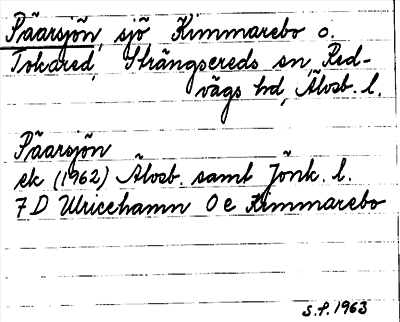 Päarsjön, sjö Kimmarebo o.
Tokared, Strängsereds sn, Red-
vägs hd, Älvsb. l.
Päarsjön
ek (1962) Älvsb. samt Jönk. l.
7 D Ulricehamn O e Kimmarebo
S.F. 1963